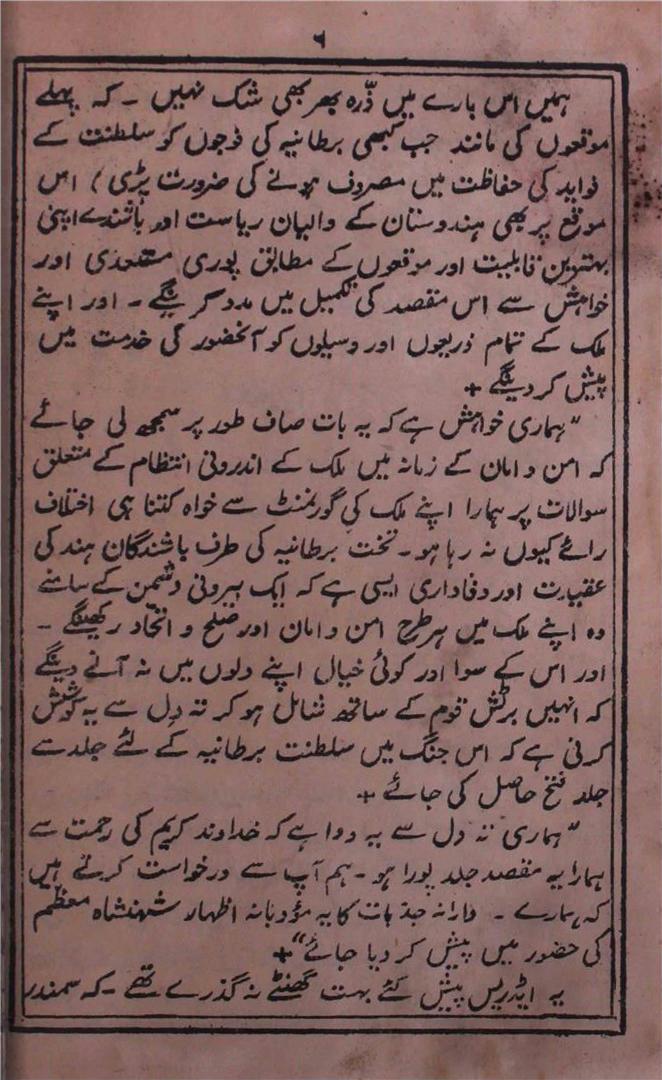 ۶
ہمیں اس بارے میں ذرّہ بھر بھی شک نہیں ۔ کہ پہلے
موقعوں کی مانند جب کبھی برطانیہ کی فوجوں کو سلطنت کے
فواید کی حفاظت میں مصروف ہونے کی ضرورت پڑی) اس
موقع پر بھی ہندوستان کے والیان ریاست اور باشندے اپنی
بہترین قابلیت اور موقعوں کے مطابق پوری مستعدی اور
خواہش سے اس مقصد کی تکمیل میں مدد کرینگے ۔ اور اپنے
ملک کے تمام ذریعوں اور وسیلوں کو آنحضور کی خدمت میں
پیش کر دینگے +
"ہماری خواہش ہے کہ یہ بات صاف طور پر سمجھ لی جائے
کہ امن و امان کے زمانہ میں ملک کے اندرونی انتظام کے متعلق
سوالات پر ہمارا اپنے ملک کی گورنمنٹ سے خواہ کتنا ہی اختلاف
رائے کیوں نہ رہا ہو ۔ تخت برطانیہ کی طرف باشندگان ہند کی
عقیدت اور وفاداری ایسی ہے کہ ایک بیرونی دشمن کے سامنے
وہ اپنے ملک میں ہر طرح امن و امان اور صلح و اتحاد رکھینگے ۔
اور اس کے سوا اور کوئی خیال اپنے دلوں میں نہ آنے دینگے
کہ انہیں برٹش قوم کے ساتھ شامل ہو کر تہ دل سے یہ کوشش
کرنی ہے کہ اس جنگ میں سلطنت برطانیہ کے لئے جلد سے
جلد فتح حاصل کی جائے +
"ہماری تہ دل سے یہ دعا ہے کہ خداوند کریم کی رحمت سے
ہمارا یہ مقصد جلد پورا ہو ۔ ہم آپ سے درخواست کرتے ہیں
کہ ہمارے ۔ دارانہ جذبات کا یہ مؤدبانہ اظہار شہنشاہ معظم
کی حضور میں پیش کر دیا جائے" +
یہ ایڈریس پیش کئے بہت گھنٹے نہ گذرے تھے ۔ کہ سمندر